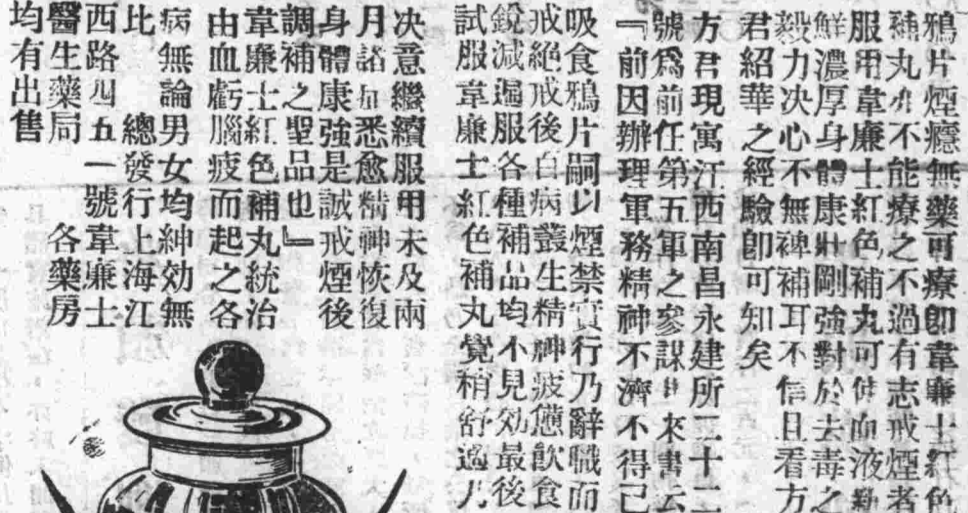 鴉片煙癮無藥可療卽韋廉士紅色
補丸亦不能療之不過有志戒煙者
服用韋廉士紅色補丸可使血液新
鮮濃厚身體康壯剛強對於去毒之
毅力决心不無裨補耳不信且看方
君紹華之經驗卽可知矣
方君現寓江西南昌永建所二十二
號爲前任第五軍之參謀其來書云
『前因辦理軍務精神不濟不得已
吸食鴉片嗣以煙禁實行乃辭職而
戒絕戒後百病叢生精神疲憊飮食
銳減遍服各種補品均不見効最後
試服韋廉士紅色補丸覺稍舒適
决意繼續服用未及兩
月諸恙悉愈精神恢復
身體康強是誠戒煙後
調補之聖品也』
韋廉士紅色補丸統治
由血虧腦疲而起之各
病無論男女均紳効無
比　總發行上海江
西路四五一號韋廉士
醫生藥局　各藥房
均有出售